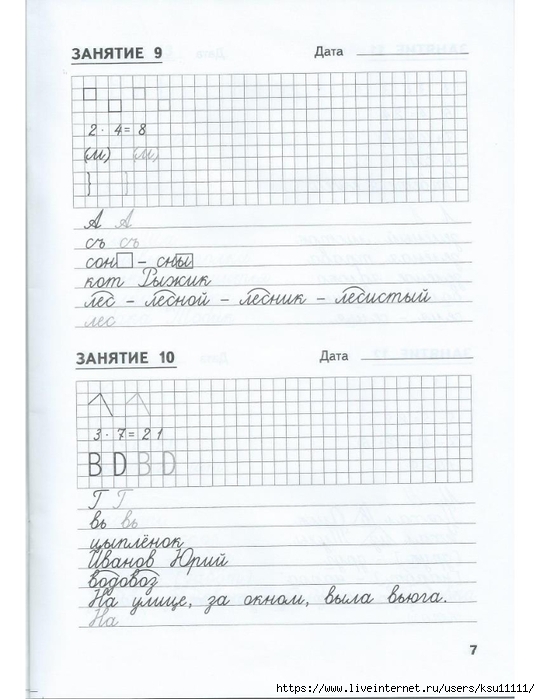 ЗАНЯТИЕ 9 Дата
2 · 4 = 8
(м) (м)
} }
А А
съ съ
сон – сны
кот Рыжик
лес – лесной – лесник – лесистый
лес
ЗАНЯТИЕ 10 Дата
3 · 7 = 21
B D B D
Г Г
вь вь
цыплёнок
Иванов Юрий
водовоз
На улице, за окном, выла вьюга.
На
7
https://www.liveinternet.ru/users/ksu11111/